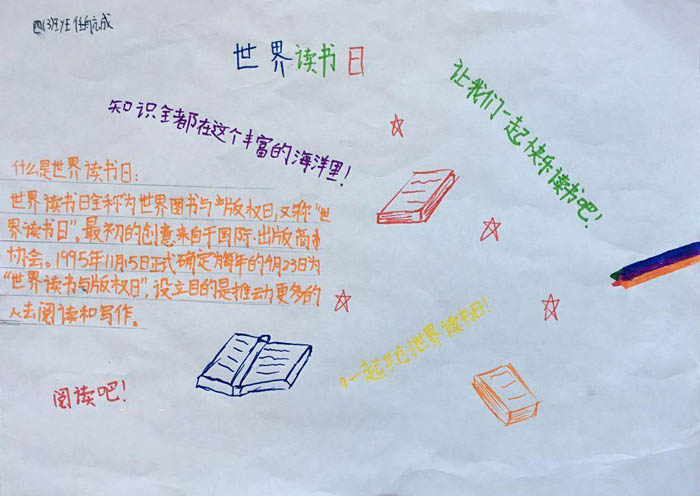 四(3)班 任航成
世界读书日
让我们一起快乐读书吧！
知识全都在这个丰富的海洋里！
什么是世界读书日：
世界读书日全称为世界图书与版权日，又称“世
界读书日”，最初的创意来自于国际出版商
协会。1995年11月15日正式确定每年的4月23日为
“世界读书与版权日”，设立目的是推动更多的
人去阅读和写作。
一起共过世界读书日！
阅读吧！